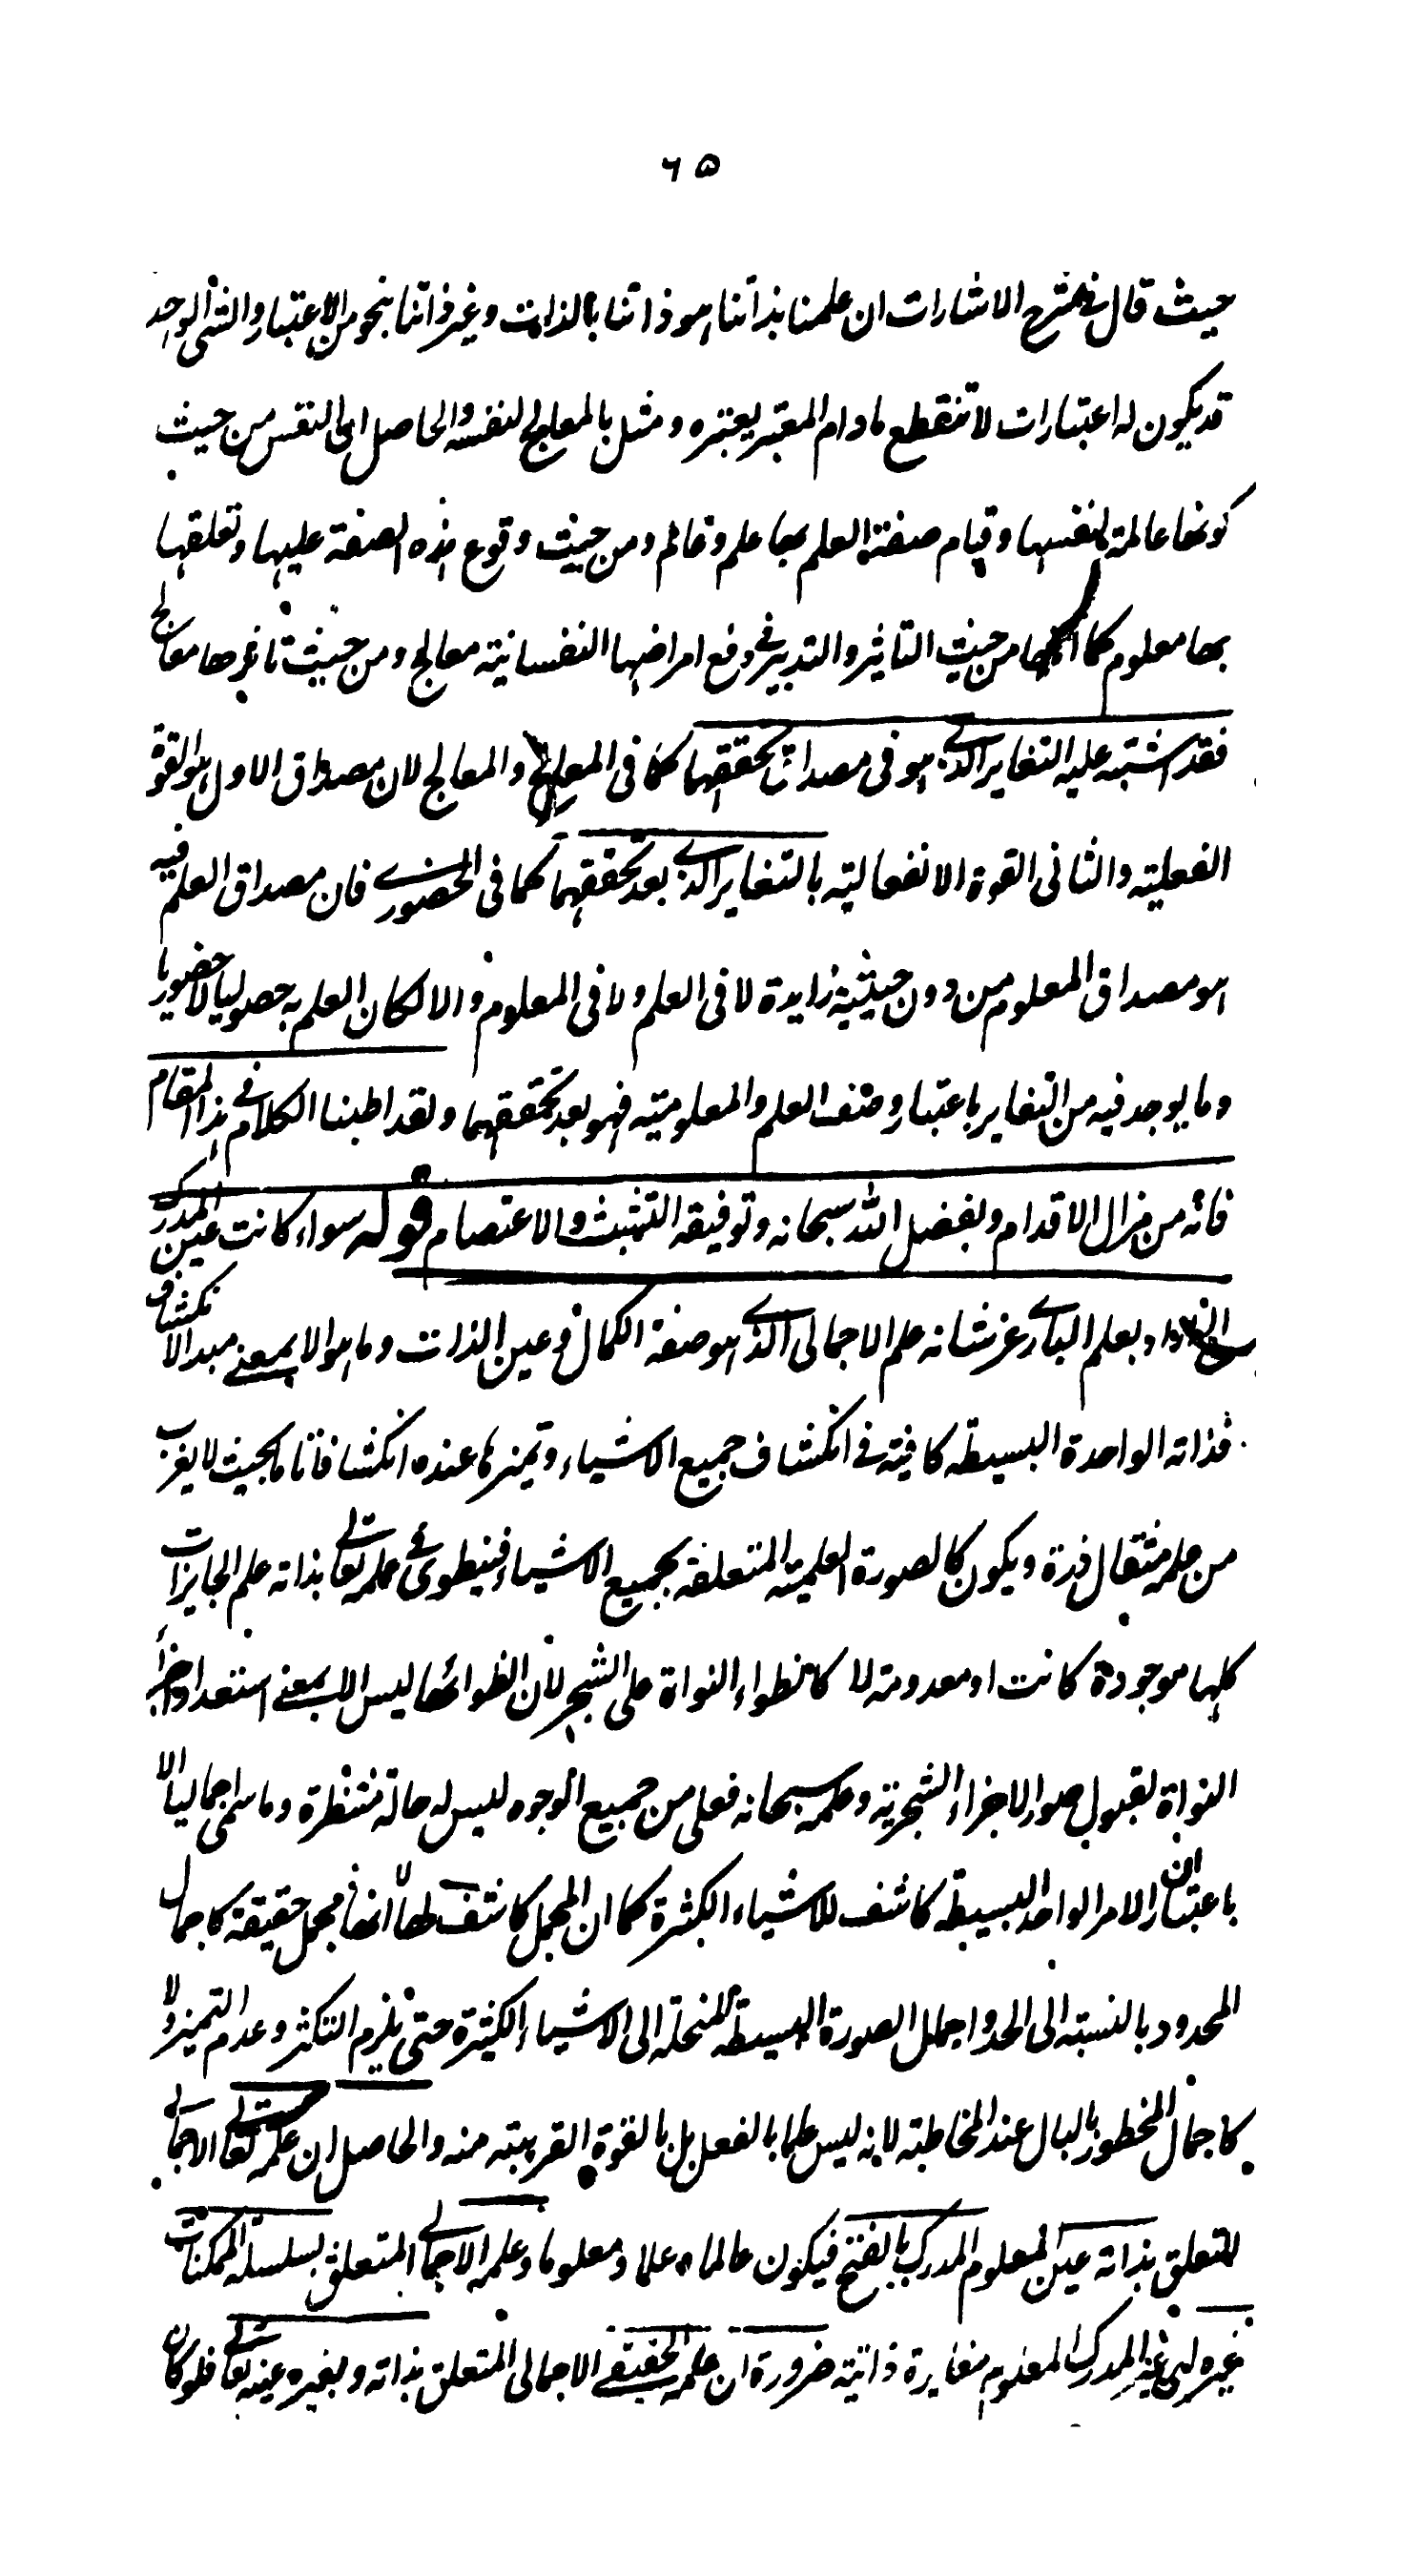 ٦٥
حيث قال فى شرح الاشارات ان علمنا بذاتنا هو ذاتنا بالذات وغير ذاتنا بنحو من الاعتبار والشئ الواحد
قد يكون له اعتبارات لا تنقطع مادام المعتبر يعتبره ومثل بالمعالج لنفسه والحاصل ان النفس من حيث
كونها عالمة لنفسها وقيام صفة العلم بها علم وعالم ومن حيث وقوع هذه الصفة عليها وتعلقها
بها معلوم كما انها من حيث التاثير والتدبير فى دفع امراضها النفسانية معالج ومن حيث تاثرها معالج
فقد اشتبه عليه التغاير الذى هو فى مصداق تحققهما كما فى المعالج والمعالج لان مصداق الاول هو القوة
الفعلية والثانى القوة الانفعالية بالتغاير الذى بعد تحققهما كما فى الحضورى فان مصداق العلم فيه
هو مصداق المعلوم من دون حيثية زايدة لا فى العلم ولا فى المعلوم والا لكان العلم به حصوليا لا حضوريا
وما يوجد فيه من التغاير باعتبار وصف العلم والمعلومية فهو بعد تحققهما ولقد اطنبنا الكلام فى هذا المقام
فانه من مزال الاقدام وبفضل الله سبحانه وتوفيقه التثبت والاعتصام قوله سواء كانت عين المدرك
المراد بعلم البارى عز شانه علم الاجمالى الذى هو صفة الكمال وعين الذات وما هو الا بمعنى مبدا الانكشاف
فذاته الواحدة البسيطة كافية فى انكشاف جميع الاشياء وتميزها عنده انكشافا تاما بحيث لا يعزب
من علمه مثقال ذرة ويكون كالصورة العلمية المتعلقة بجميع الاشياء فينطوى فى علمه تعالى بذاته علم الجايزات
كلها موجودة كانت او معدومة لا كانطواء النواة على الشجر لان انطوائها ليس الا بمعنى استعداد اجزاء
النواة لقبول صور الاجزاء الشجرية وعلمه سبحانه فعلى من جميع الوجوه ليس له حالة منتظرة وما سمى اجماليا الا
باعتبار ان الامر الواحد البسيط كاشف للاشياء الكثيرة كما ان المجمل كاشف لها لا انها مجمل حقيقة كاجمال
المحدود بالنسبة الى الحد واجمال الصورة البسيطة المنحلة الى الاشياء الكثيرة حتى يلزم التكثر وعدم التميز ولا
كاجمال المخطور بالبال عند المخاطبة لانه ليس علما بالفعل بل بالقوة القريبة منه والحاصل ان علمه تعالى الاجمالى
المتعلق بذاته عين المعلوم المدرك بالفتح فيكون عالما وعلما ومعلوما وعلمه الاجمالى المتعلق بسلسلة الممكنات
غيره اى غير المدرك المعلوم مغايرة ذاتية ضرورة ان علمه الحقيقى الاجمالى المتعلق بذاته وبغيره عينه تعالى فلو كان